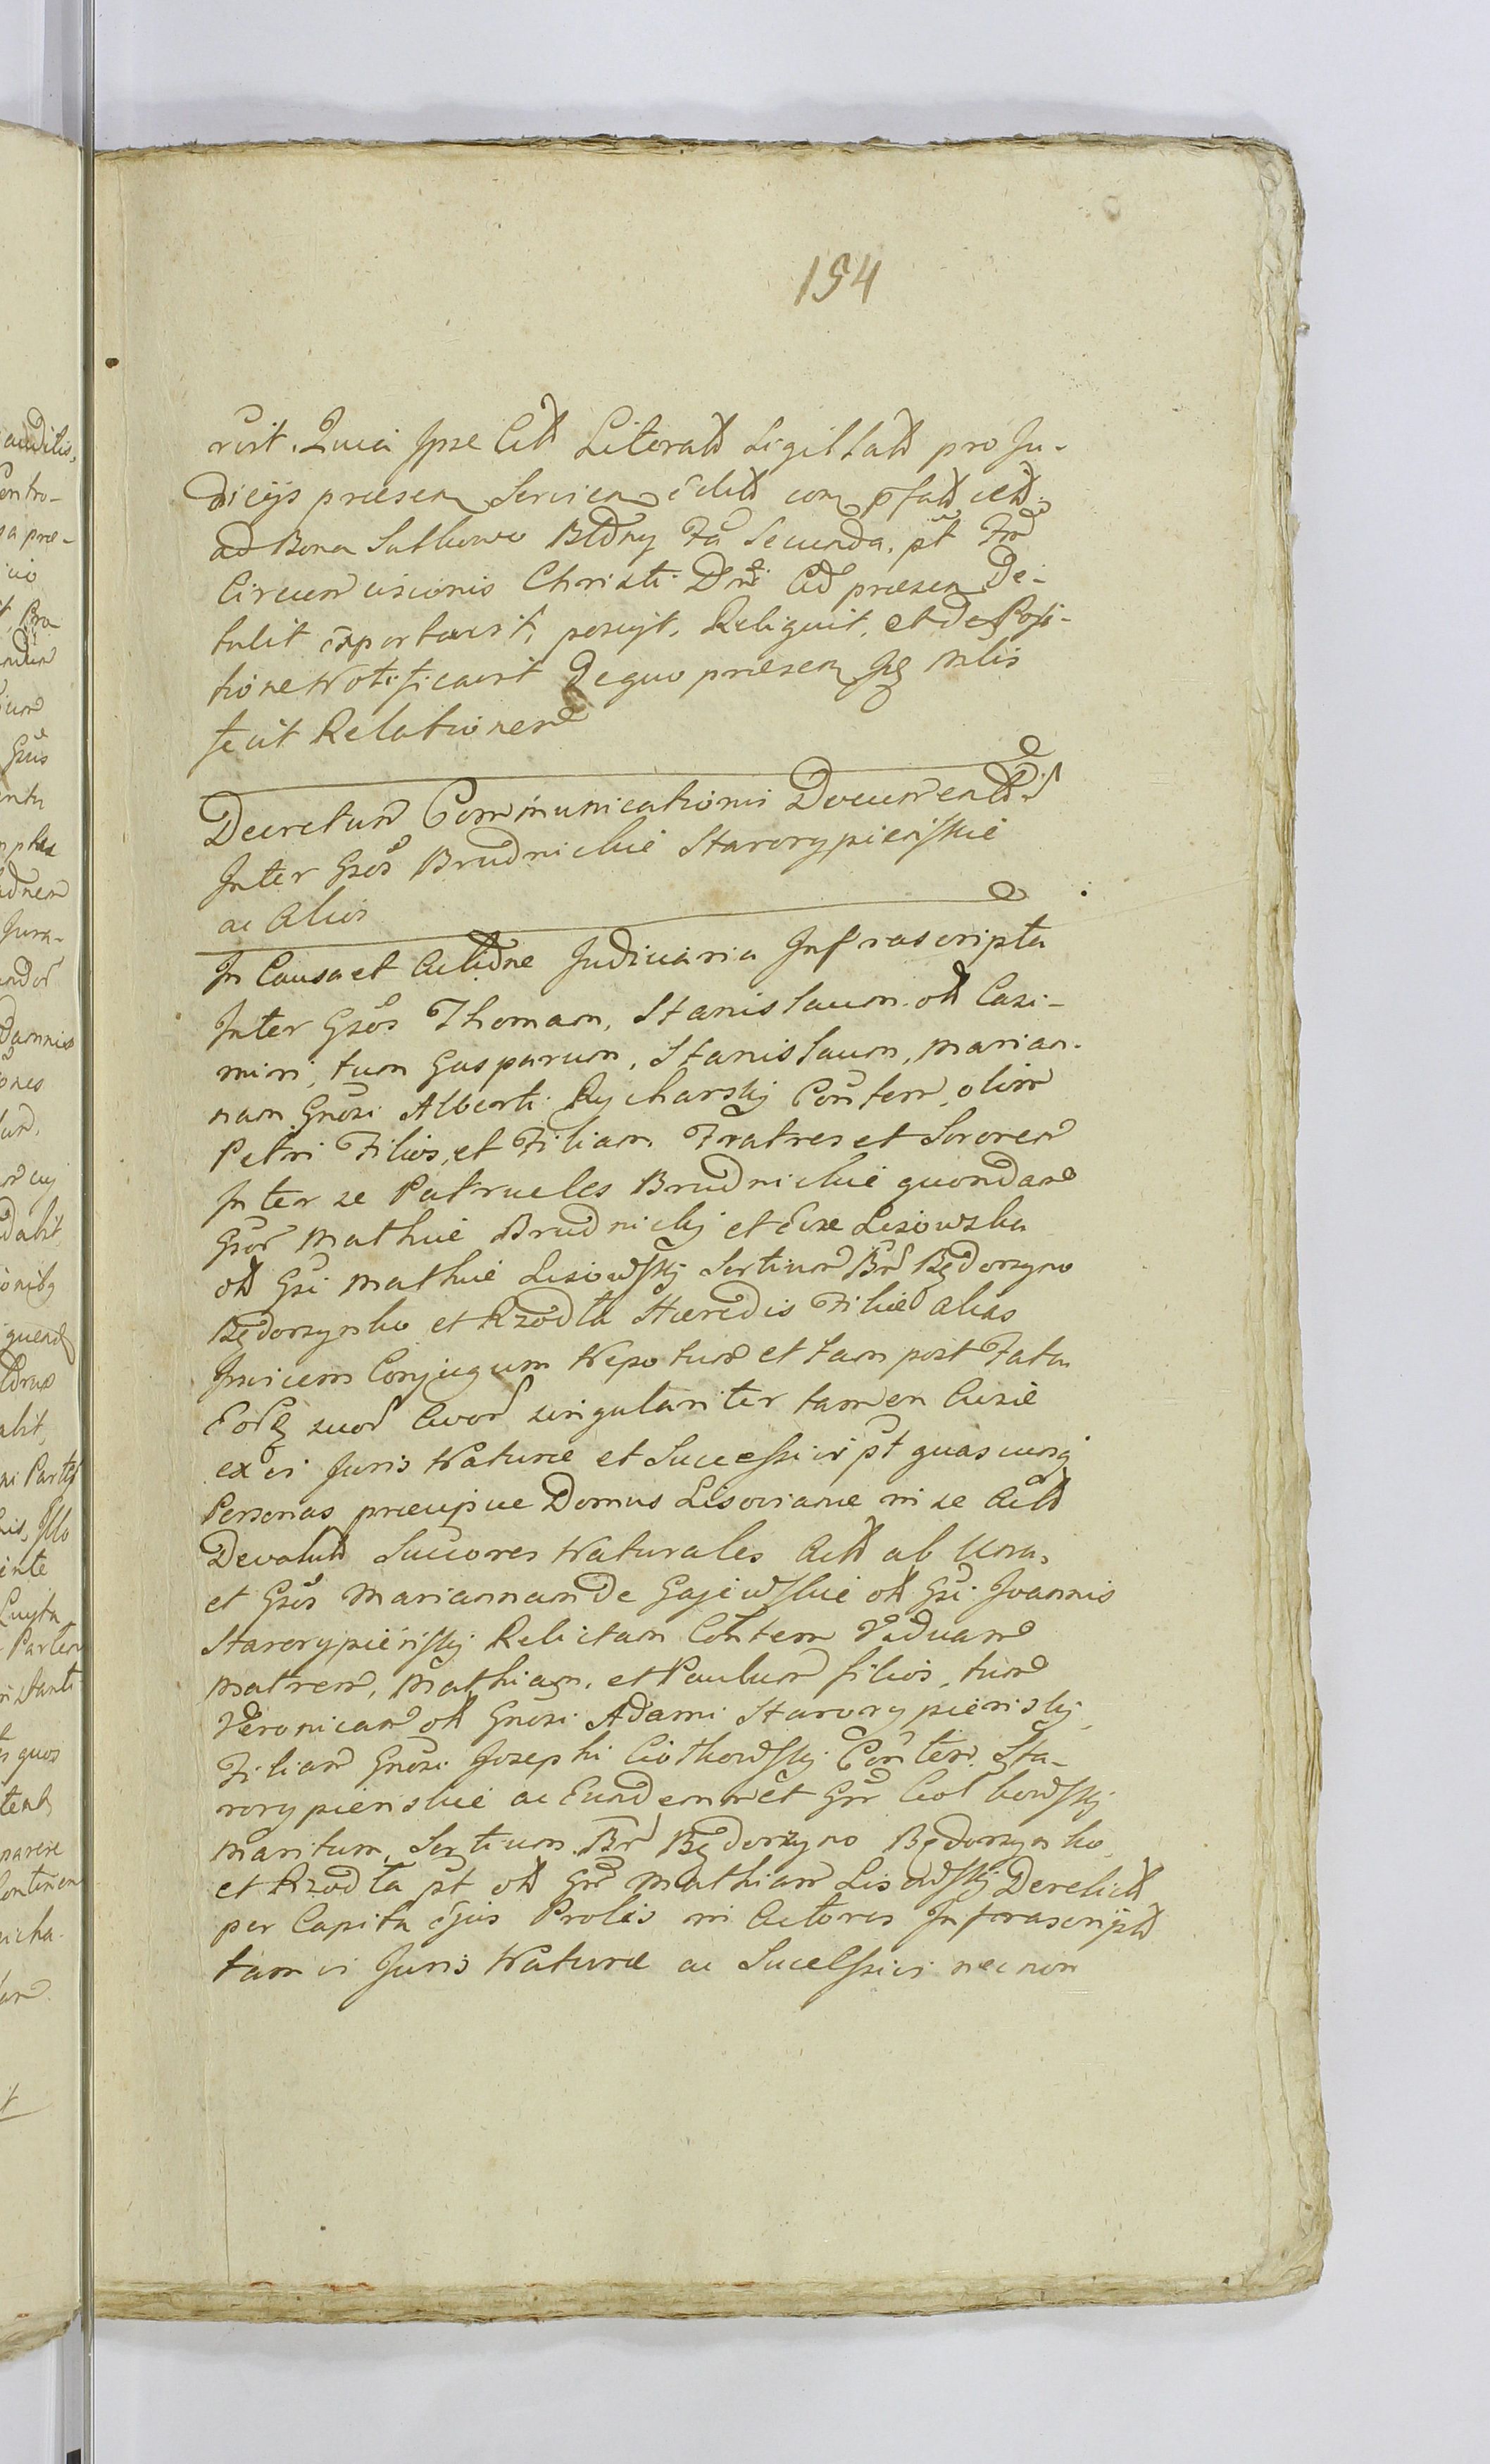 154
vit. Quia Ipse Citt Literatt Sigillatt pro Ju-
dicijs præsen Servien Editt con pfatt
ad Bona Sutkowo Bldny Fa Secunda pt Fm
Circumcisionis Christi Dni Ad præsen De-
tulit exportavit, posuit, Reliquit, et de Posi-
tione Notificavit De quo præsen Mlis
fecit Relationem
Decretum Communicationis Documentt
Inter Gsos Brudnickie Starorypieńskie
ac Alios
In Causa et Actione Judiciaria Infrascripta
Inter Gsos Thomam, Stanislaum ott Casi-
miri, tum Gasparum, Stanislaum, Marian-
nam Gnosi Alberti Rycharskij Contem, olim
Petri Filios, et Filiam Fratres et Sororem
Inter se Patrueles Brudnickie quondam
Gsor Mathiæ Brudnickij et Evæ Lisowska
ott Gsi Mathiæ Lisowskij Sortium Br Będorzyno
Będorzynko et Rzodła Hæredis Filiæ alias
Invicem Conjugum Nepotum et tam post Fata
Eor suor Avor singulariter tamen Aviæ
ex vi Juris Naturæ et Successivi pt quascunq
Personas præcipue Domus Lisoviane in se Actt
Devolutt Succores Naturales Actt ab Una,
et Gsos Mariannam De Gajewskie ott Gsi Joannis
Starorypieńskij Relictam Contem Viduam
Matrem, Mathiam, et Paulum filios, tum
Veronicam ott Gnosi Adami Starorypienskij
Filiam Gnosi Josephi Ciołkowskij Contem Sta-
rorypienskie ac Eundemmet Gsm Ciolkowskij
Maritum, Sortium Br Będorzyno Będorzynko
et Rzodła pt ott Gsm Mathiam Lisowskij Derelictt
per Capita Ejus Prolis in Actores Infrascriptt
tam vi Juris Naturæ ac Successivi nec non